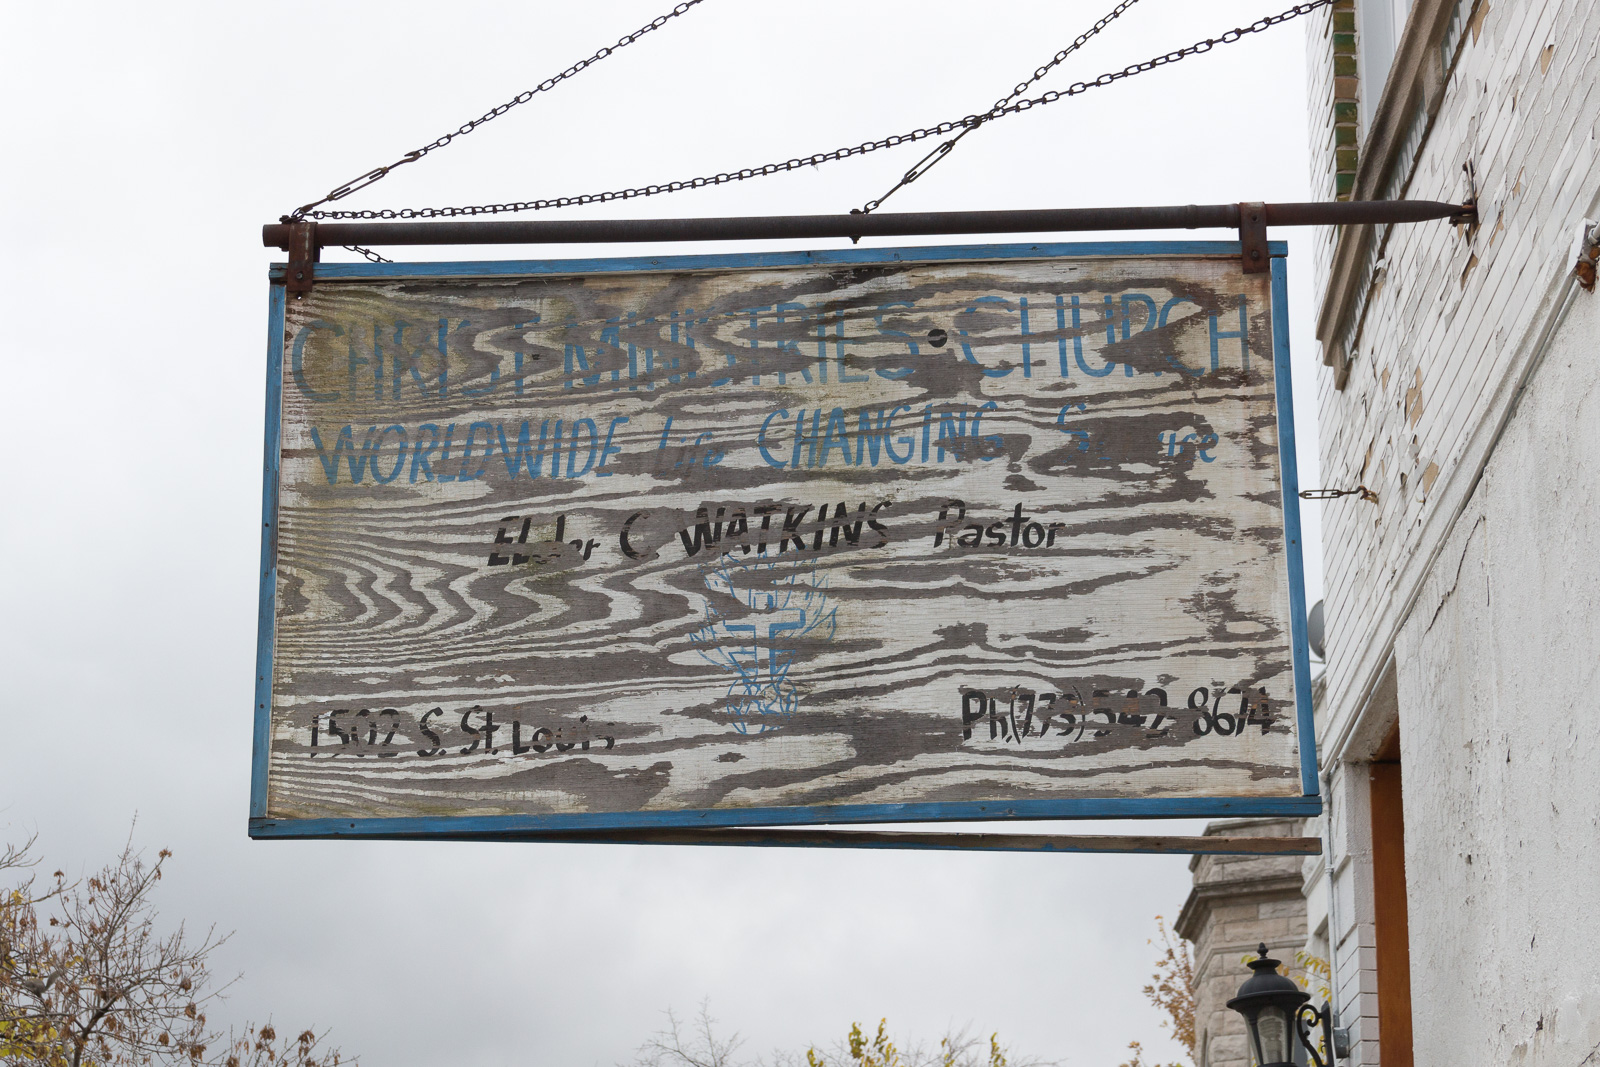 CHRIST MINISTRIES CHURCH
WORLDWIDE life CHANGING
ELder C WATKINS Pastor
1502 S. St. Louis
Ph.(773) 542-8674